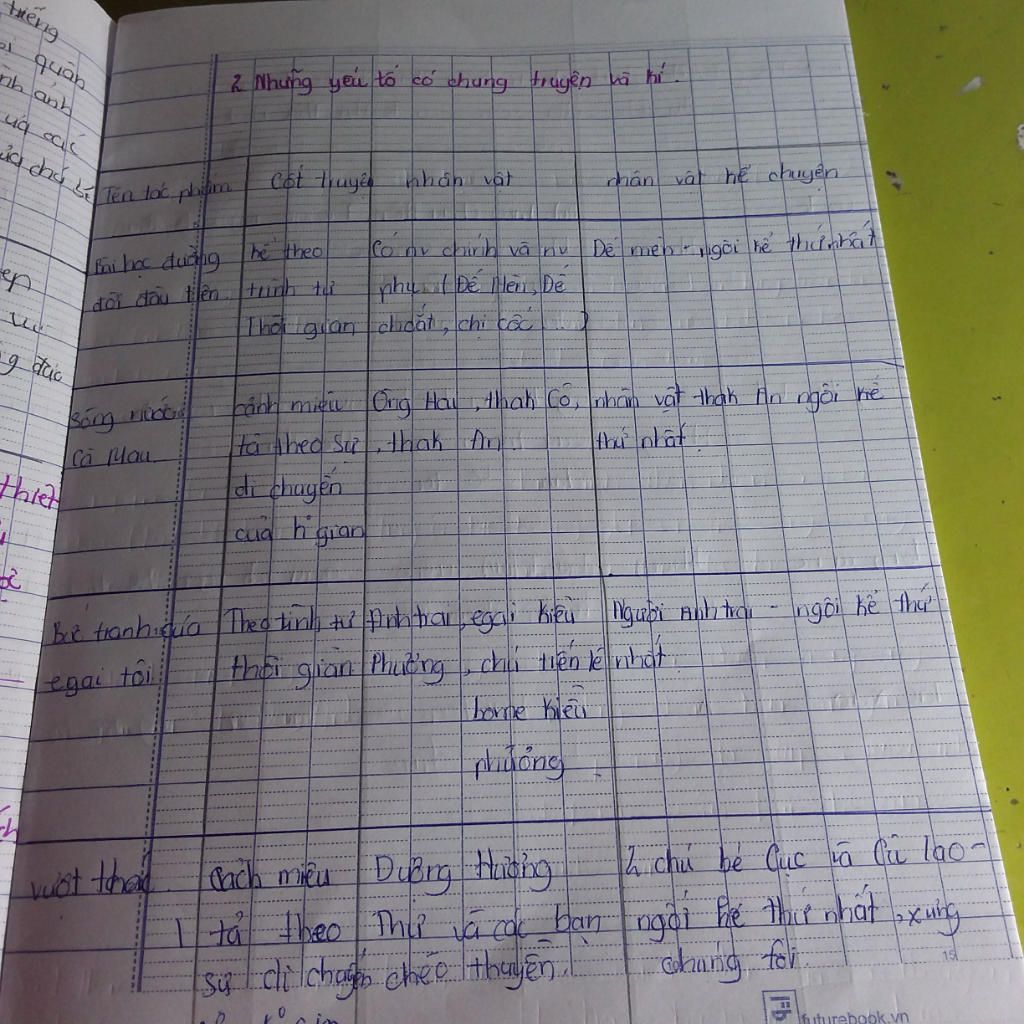 tiếng
quân
ành ảnh
của các
của chú bé
2. Những yếu tố có chung truyện và kí.
Tên tác phẩm Cốt truyện nhân vật nhân vật kể chuyện
Bài học đường kể theo Có nv chính và nv Dế mèn - ngôi kể thứ nhất
đời đầu tiên trình tự phụ (Dế Mèn, Dế
Thời gian choắt, chị cốc )
Sông nước cảnh miêu Ông Hai, thah Cò, nhân vật thah An ngôi kể
Cà Mau tả theo sự , thah An thứ nhất
di chuyển
của k° gian
Bức tranh của Theo tình tự Anh trai, egai Kiều Người anh trai - ngôi kể thứ
egai tôi thời gian Phương, chú tiến lê nhất
bome Kiều
phương.
vượt thác Cách miêu Dượng Hương 2 chú bé Cục và Cù lao -
tả theo Thư và các bạn ngôi kể thứ nhất, xưng
sự di chuyển chèo thuyền. chúng tôi
thiet
15
futurebook.vn